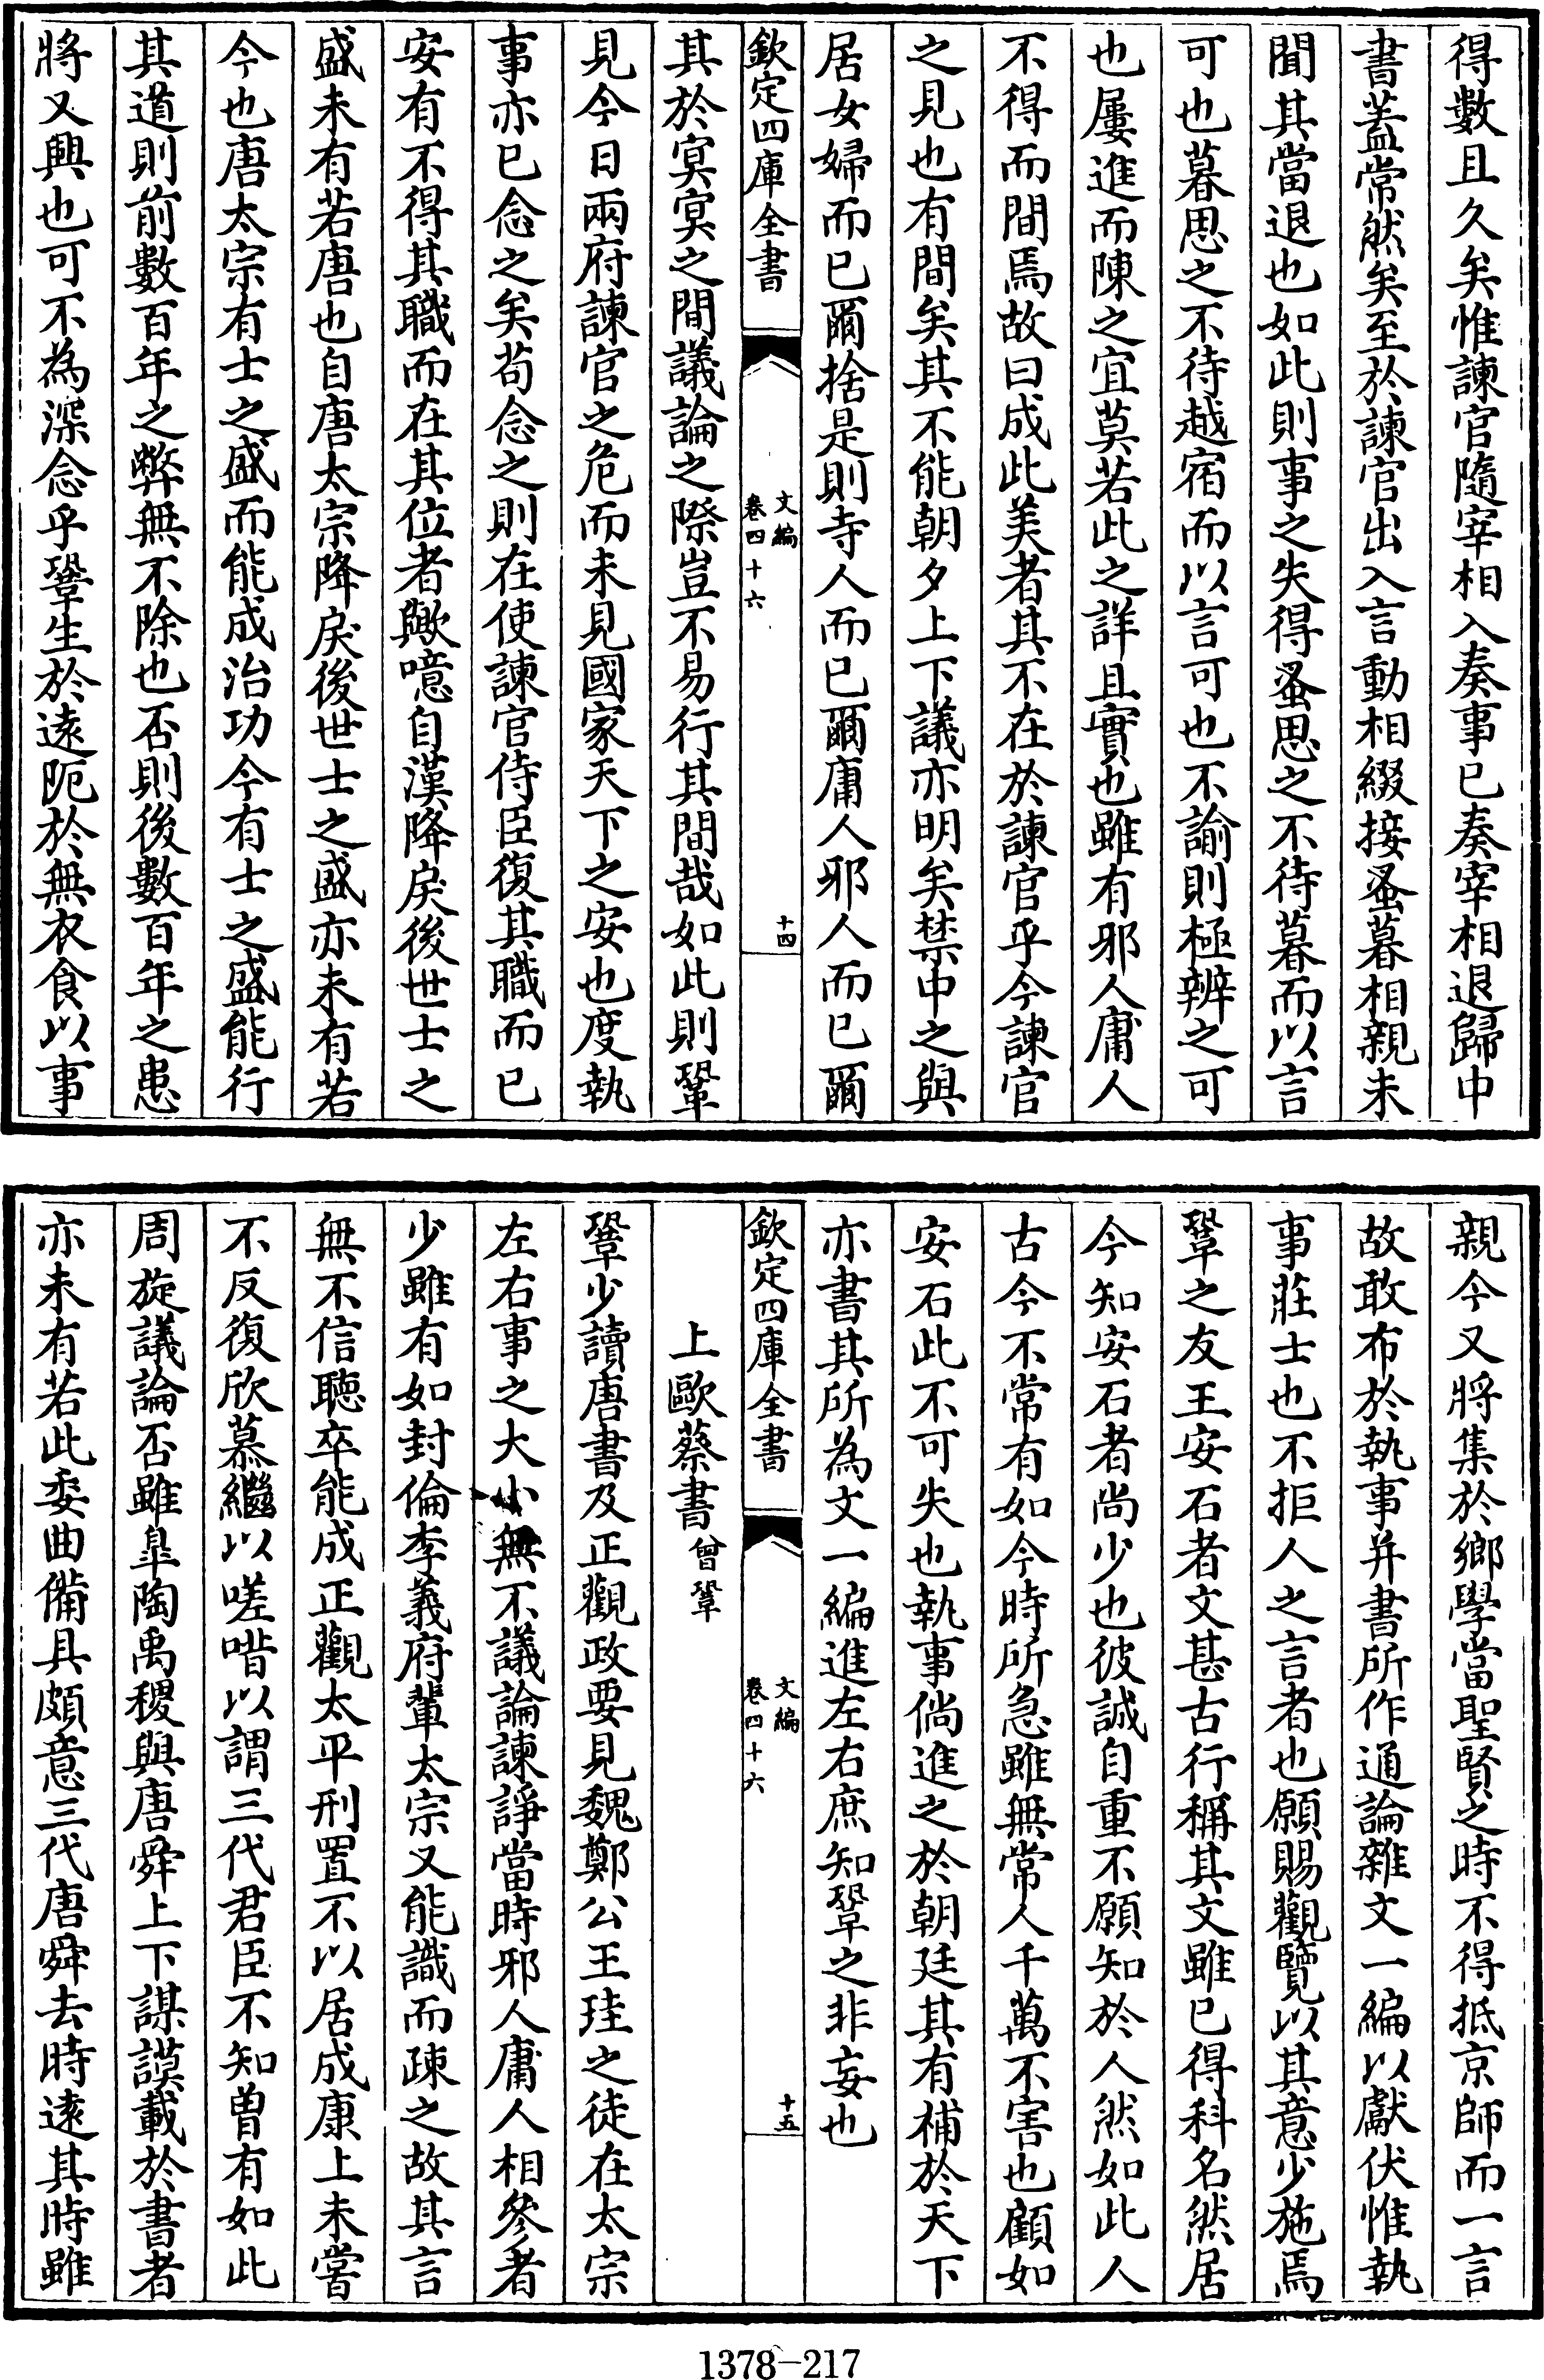 得數且久矣惟諫官隨宰相入奏事已奏宰相退歸中
書蓋常然矣至於諫官出入言動相綴接蚤暮相親未
聞其當退也如此則事之失得蚤思之不待暮而以言
可也暮思之不待越宿而以言可也不諭則極辨之可
也屢進而陳之宜莫若此之詳且實也雖有邪人庸人
不得而間焉故曰成此美者其不在於諫官乎今諫官
之見也有間矣其不能朝夕上下議亦明矣禁中之與
居女婦而已爾捨是則寺人而已爾庸人邪人而已爾
欽定四庫全書
文編
卷四十六
十四
其於冥冥之間議論之際豈不易行其間哉如此則鞏
見今日兩府諫官之危而未見國家天下之安也度執
事亦已念之矣苟念之則在使諫官侍臣復其職而已
安有不得其職而在其位者歟噫自漢降戾後世士之
盛未有若唐也自唐太宗降戾後世士之盛亦未有若
今也唐太宗有士之盛而能成治功今有士之盛能行
其道則前數百年之弊無不除也否則後數百年之患
將又興也可不為深念乎鞏生於遠阨於無衣食以事
親今又將集於鄉學當聖賢之時不得抵京師而一言
故敢布於執事并書所作通論雜文一編以獻伏惟執
事莊士也不拒人之言者也願賜觀覽以其意少施焉
鞏之友王安石者文甚古行稱其文雖已得科名然居
今知安石者尚少也彼誠自重不願知於人然如此人
古今不常有如今時所急雖無常人千萬不害也顧如
安石此不可失也執事倘進之於朝廷其有補於天下
亦書其所為文一編進左右庶知鞏之非妄也
欽定四庫全書
文編
卷四十六
十五
上歐蔡書曾鞏
鞏少讀唐書及正觀政要見魏鄭公王珪之徒在太宗
左右事之大小無不議論諫諍當時邪人庸人相參者
少雖有如封倫李義府輩太宗又能識而疎之故其言
無不信聽卒能成正觀太平刑置不以居成康上未嘗
不反復欣慕繼以嗟喈以謂三代君臣不知曾有如此
周旋議論否雖皐陶禹稷與唐舜上下謀謨載於書者
亦未有若此委曲備具頗意三代唐舜去時遠其時雖
1378-217